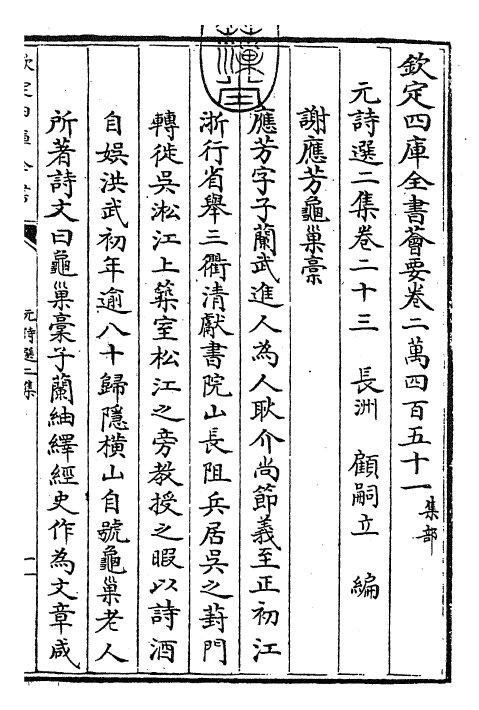 欽定四庫全書薈要卷二萬四百五十一集部
元詩選二集卷二十三 長洲 顧嗣立 編
謝應芳龜巢稾
應芳字子蘭武進人為人耿介尚節義至正初江
浙行省舉三衢清獻書院山長阻兵居吳之葑門
轉徙吳淞江上築室松江之旁教授之暇以詩酒
自娛洪武初年逾八十歸隱横山自號龜巢老人
所著詩文曰龜巢稾子蘭紬繹經史作為文章咸
欽定四庫全書
元詩選二集
一